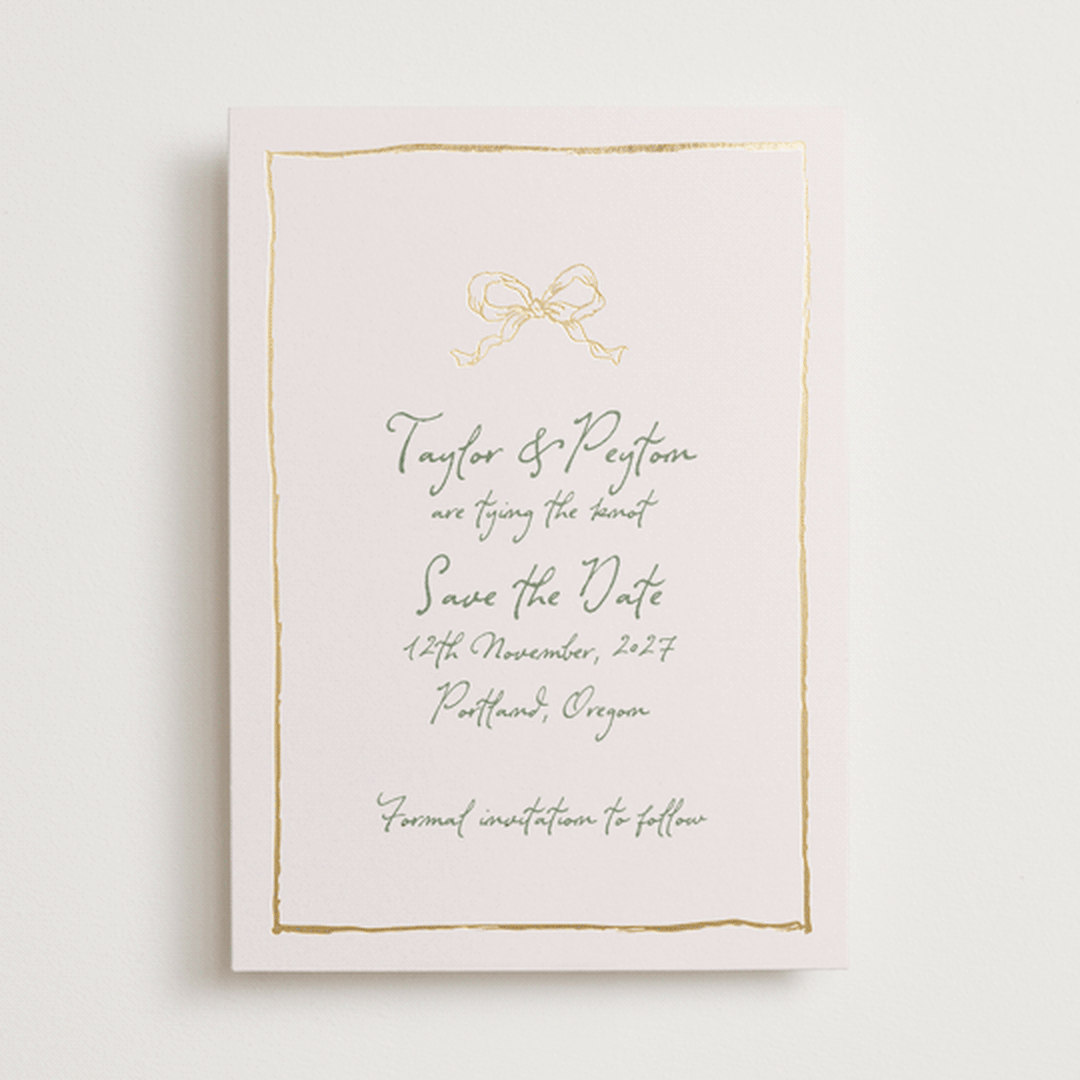 Taylor & Peyton
are tying the knot
Save the Date
12th November, 2027
Portland, Oregon
Formal invitation to follow